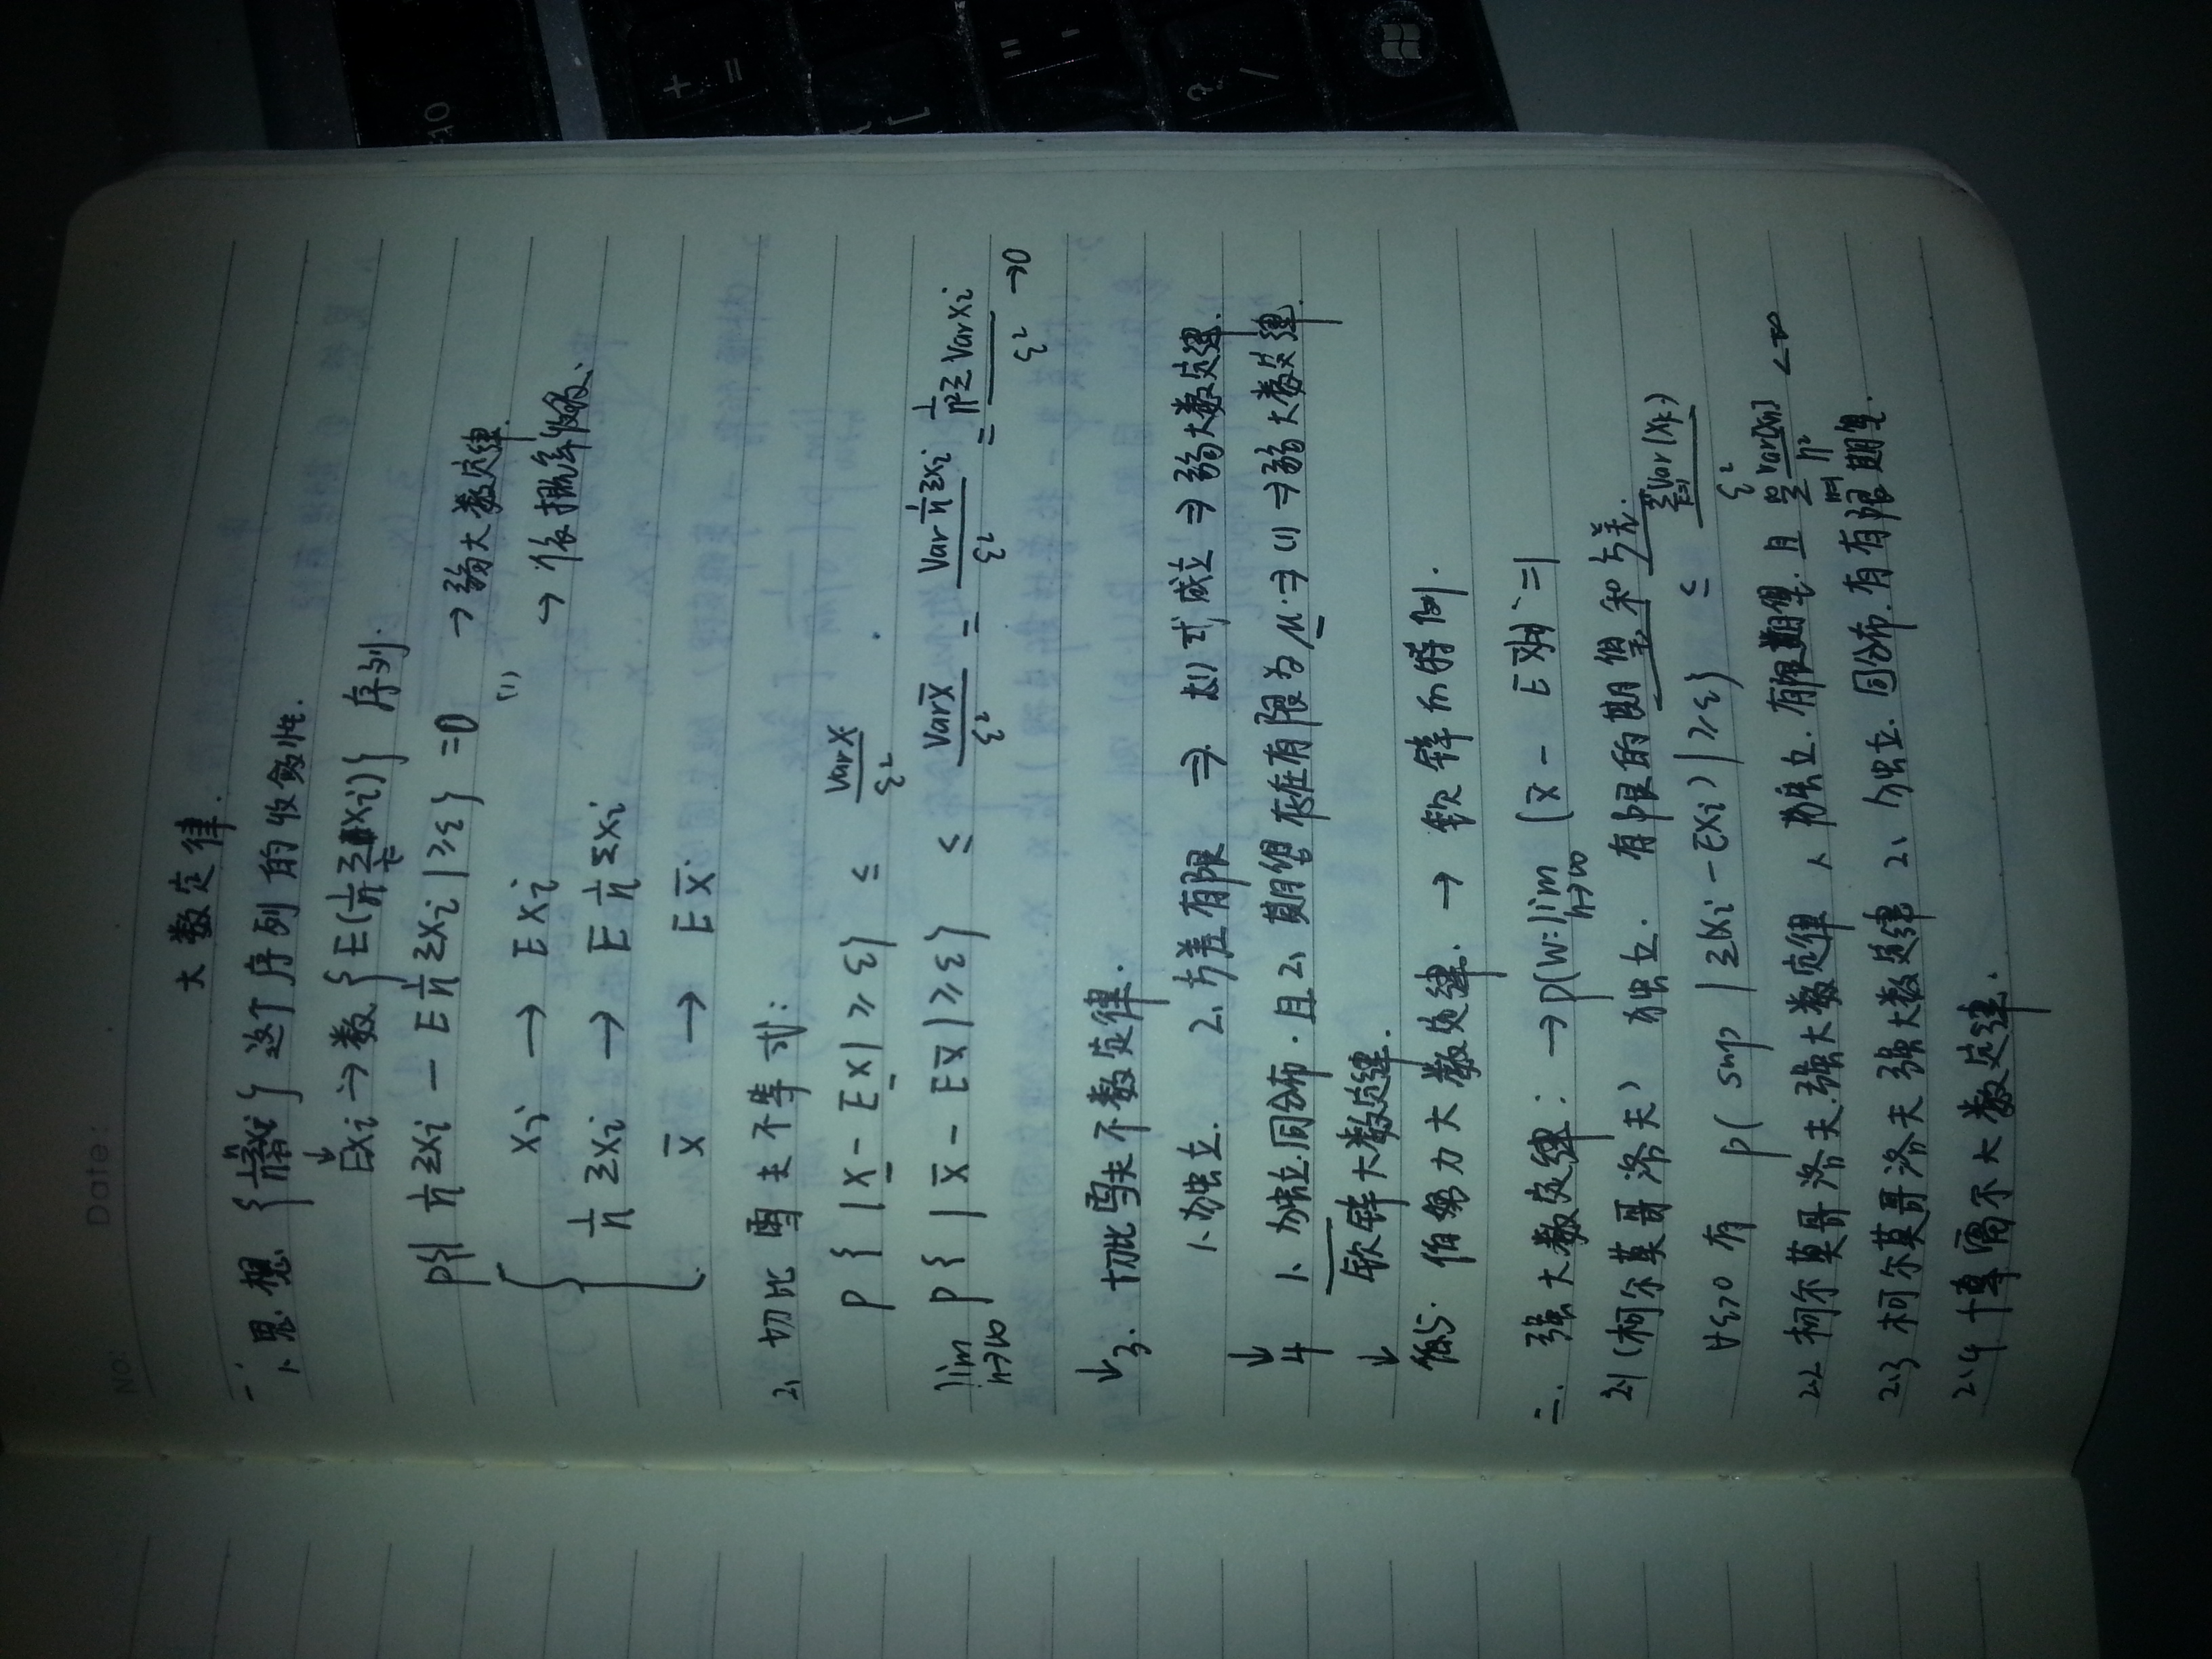 No: Date:
大数定律.
一、
1、思想 {1/n ΣXi} 这个序列的收敛性.
↓
EXi → 数 {E(1/n ΣXi)} 序列.
P{| 1/n ΣXi - E 1/n ΣXi | ≥ε} =0 → 弱大数定律.
(1)
Xi → EXi → 依概率收敛.
1/n ΣXi → E 1/n ΣXi
X̄ → EX̄
2、切比雪夫不等式:
P { |X - EX| ≥ ε} ≤ VarX/ε²
lim n→∞ P{ | X̄ - EX̄ | ≥ε} ≤ VarX̄/ε² = Var 1/n ΣXi/ε² = 1/n² Σ VarXi/ε² →0
↓ 3. 切比雪夫不数定律.
1、独立. 2、方差有限 ⇒ (1) 式成立 ⇒ 弱大数定律.
↓
4 1、独立.同分布.且2、期望存在有限为 μ. ⇒ (1) ⇒ 弱大数定律.
↓ 钦锌大数定律.
5. 伯努力大数定律. → 钦锌的特例.
二. 强大数定律: → P(W: lim n→∞ (X̄ - EX̄ =1
2.1 (柯尔莫哥洛夫) 独立. 有限的期望和方差.
∀ε>0 有 P( sup | Σ(Xi - EXi) | ≥ε} ≤ Σ k=1 Var(Xk)/ε²
2.2 柯尔莫哥洛夫.强大数定律 1、独立. 有限期望. 且 ∞ Σ n=1 Var[Xn]/n² <∞
2.3 柯尔莫哥洛夫强大数定律 2、独立. 同分布. 有有限期望.
2.4 博雷尔大数定律.